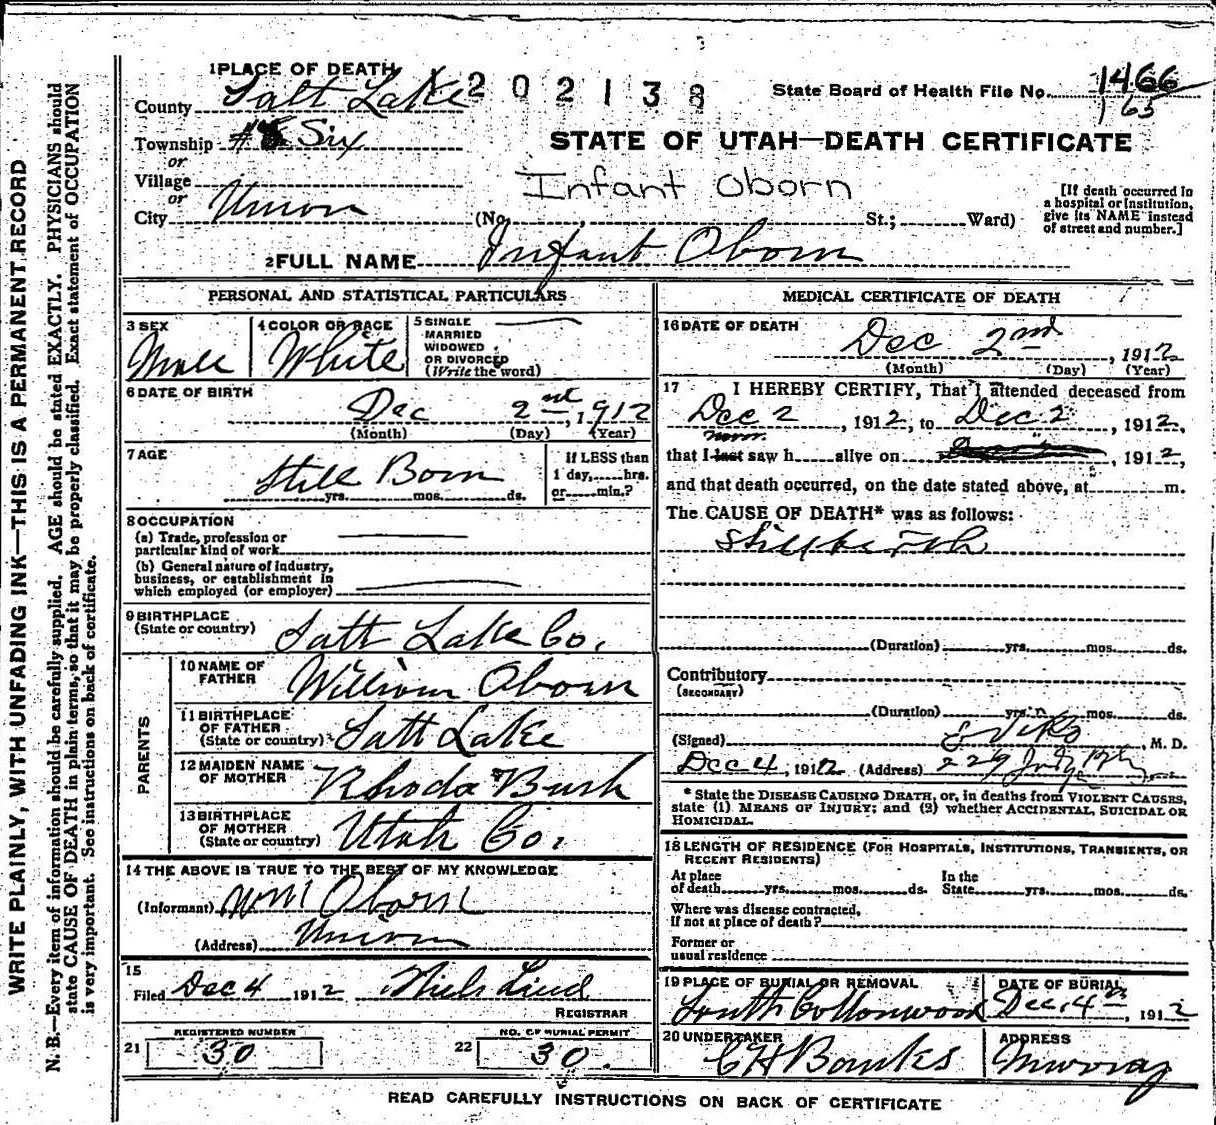 1 PLACE OF DEATH 1202138 State Board of Health File No. 1466
County Salt Lake 165
Township # Six STATE OF UTAH—DEATH CERTIFICATE
or
Village Infant Oborn
or
City Union (No. St.; Ward)
[If death occurred in
a hospital or institution,
give its NAME instead
of street and number.]
2 FULL NAME Infant Oborn
PERSONAL AND STATISTICAL PARTICULARS
3 SEX Male 4 COLOR OR RACE White
5 SINGLE
MARRIED
WIDOWED
OR DIVORCED
(Write the word)
6 DATE OF BIRTH Dec 2nd, 1912
(Month) (Day) (Year)
7 AGE Still Born
yrs. mos. ds.
If LESS than
1 day, hrs.
or min.?
8 OCCUPATION
(a) Trade, profession or
particular kind of work
(b) General nature of industry,
business, or establishment in
which employed (or employer)
9 BIRTHPLACE
(State or country) Salt Lake Co.
PARENTS
10 NAME OF
FATHER William Oborn
11 BIRTHPLACE
OF FATHER
(State or country) Salt Lake
12 MAIDEN NAME
OF MOTHER Rhoda Bush
13 BIRTHPLACE
OF MOTHER
(State or country) Utah Co.
14 THE ABOVE IS TRUE TO THE BEST OF MY KNOWLEDGE
(Informant) Wm Oborn
(Address) Union
15
Filed Dec 4 1912 Niels Lind
REGISTRAR
REGISTERED NUMBER NO. OF BURIAL PERMIT
21 30 22 30.
MEDICAL CERTIFICATE OF DEATH
16 DATE OF DEATH Dec 2nd, 1912
(Month) (Day) (Year)
17 I HEREBY CERTIFY, That I attended deceased from
Dec 2, 1912, to Dec 2, 1912,
that I last saw h alive on , 1912,
and that death occurred, on the date stated above, at m.
The CAUSE OF DEATH* was as follows:
Stillbirth
(Duration) yrs. mos. ds.
Contributory
(SECONDARY)
(Duration) yrs. mos. ds.
(Signed) , M. D.
Dec 4, 1912 (Address) 229 Judge Bldg
* State the DISEASE CAUSING DEATH, or, in deaths from VIOLENT CAUSES,
state (1) MEANS OF INJURY; and (2) whether ACCIDENTAL, SUICIDAL OR
HOMICIDAL.
18 LENGTH OF RESIDENCE (FOR HOSPITALS, INSTITUTIONS, TRANSIENTS, OR
RECENT RESIDENTS)
At place In the
of death yrs. mos. ds. State yrs. mos. ds.
Where was disease contracted,
If not at place of death?
Former or
usual residence
19 PLACE OF BURIAL OR REMOVAL DATE OF BURIAL
South Cottonwood Dec. 4th, 1912
20 UNDERTAKER ADDRESS
Murray
READ CAREFULLY INSTRUCTIONS ON BACK OF CERTIFICATE
WRITE PLAINLY, WITH UNFADING INK—THIS IS A PERMANENT RECORD
N. B.—Every item of information should be carefully supplied. AGE should be stated EXACTLY. PHYSICIANS should
state CAUSE OF DEATH in plain terms, so that it may be properly classified. Exact statement of OCCUPATION
is very important. See instructions on back of certificate.